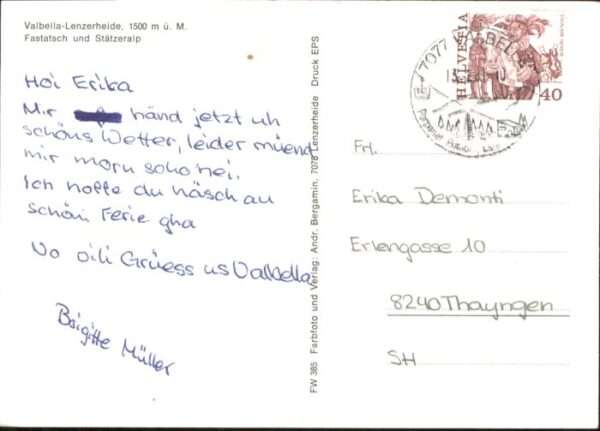 Valbella-Lenzerheide, 1500 m ü. M.
Fastatsch und Stätzeralp
Hoi Erika
Mir händ jetzt uh
schöns Wetter, leider müend
mir morn scho hei.
Ich hoffe du häsch au
schöni Ferie gha
No vili Grüess us Valbella
Brigitte Müller
FW 385 Farbfoto und Verlag: Andr. Bergamin, 7078 Lenzerheide Druck EPS
7077 VALBELLA
HELVETIA
40
Frl.
Erika Demonti
Erlengasse 10
8240 Thayngen
SH